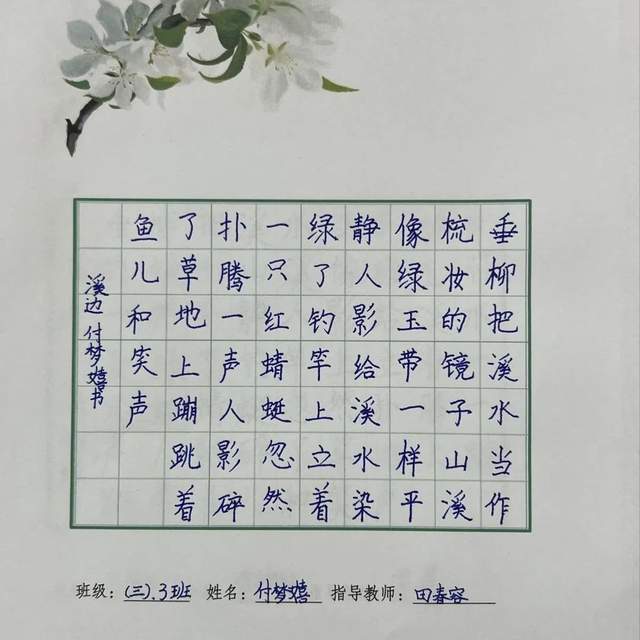 垂柳把溪水当作
梳妆的镜子山溪
像绿玉带一样平
静人影给溪水染
绿了钓竿上立着
一只红蜻蜓忽然
扑腾一声人影碎
了草地上蹦跳着
鱼儿和笑声
溪边 付梦嬉书
班级：(三).3班 姓名：付梦嬉 指导教师：田春容